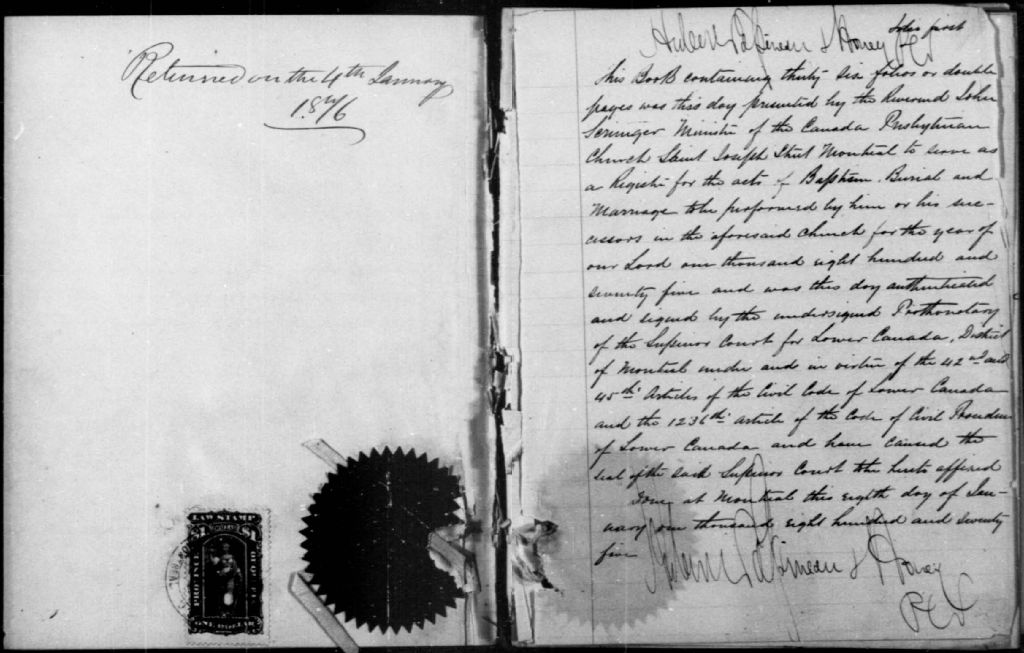 Returned on the 4th January
1876
LAW STAMP
$1 DOLLAR $1
PROVINCE OF QUEBEC
ONE DOLLAR
MONTREAL
folio first
Hubert Papineau & Honey
PCS
This Book containing thirty six folios or double
pages was this day presented by the Reverend John
Scrimger Ministr of the Canada Presbyterian
Church Saint Joseph Street Montreal to serve as
a Registr for the acts of Baptism Burial and
Marriage to be preformed by him or his suc-
cessors in the aforesaid Church for the year of
our Lord one thousand eight hundred and
seventy five and was this day authenticated
and signed by the undersigned Prothonotary
of the Superior Court for Lower Canada, District
of Montreal under and in virtue of the 42nd and
45th Articles of the Civil Code of Lower Canada
and the 1236th article of the Code of Civil Procedure
of Lower Canada and have caused the
seal of the said Superior Court to be hereto affixed
Done at Montreal this eighth day of Jan-
uary one thousand eight hundred and seventy
five
Hubert Papineau & Honey
PCS